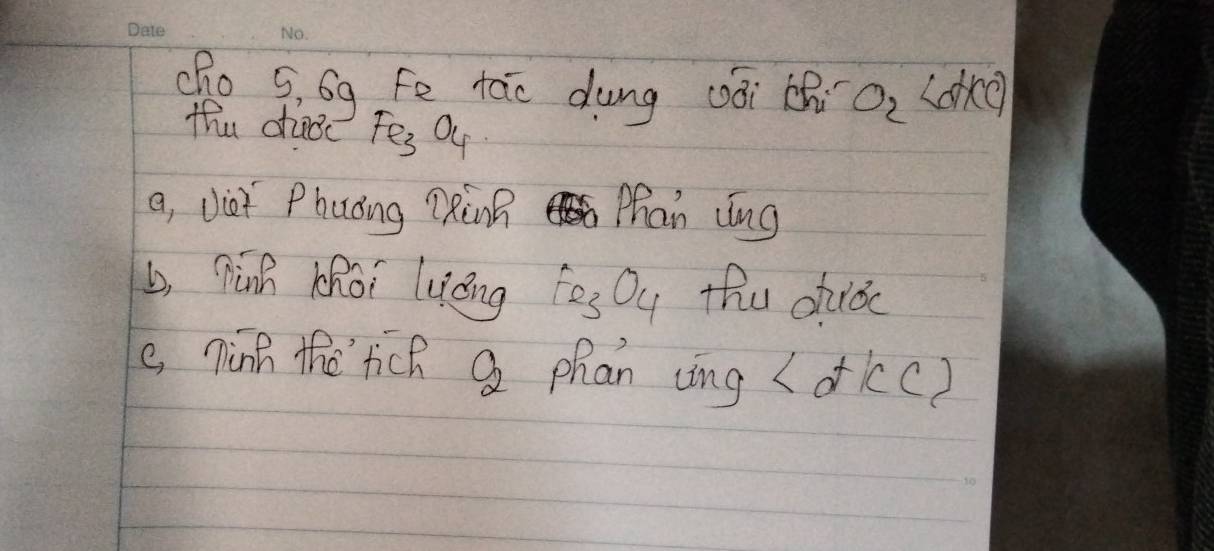 Date No.
cho 5,6g Fe tác dụng với khí O2 <đkc)
thu được Fe3O4.
a, Viết Phương Trình Phản ứng
b, Tính khối lượng Fe3O4 thu được
c, Tính thể tích O2 phản ứng <đkc)
5
10